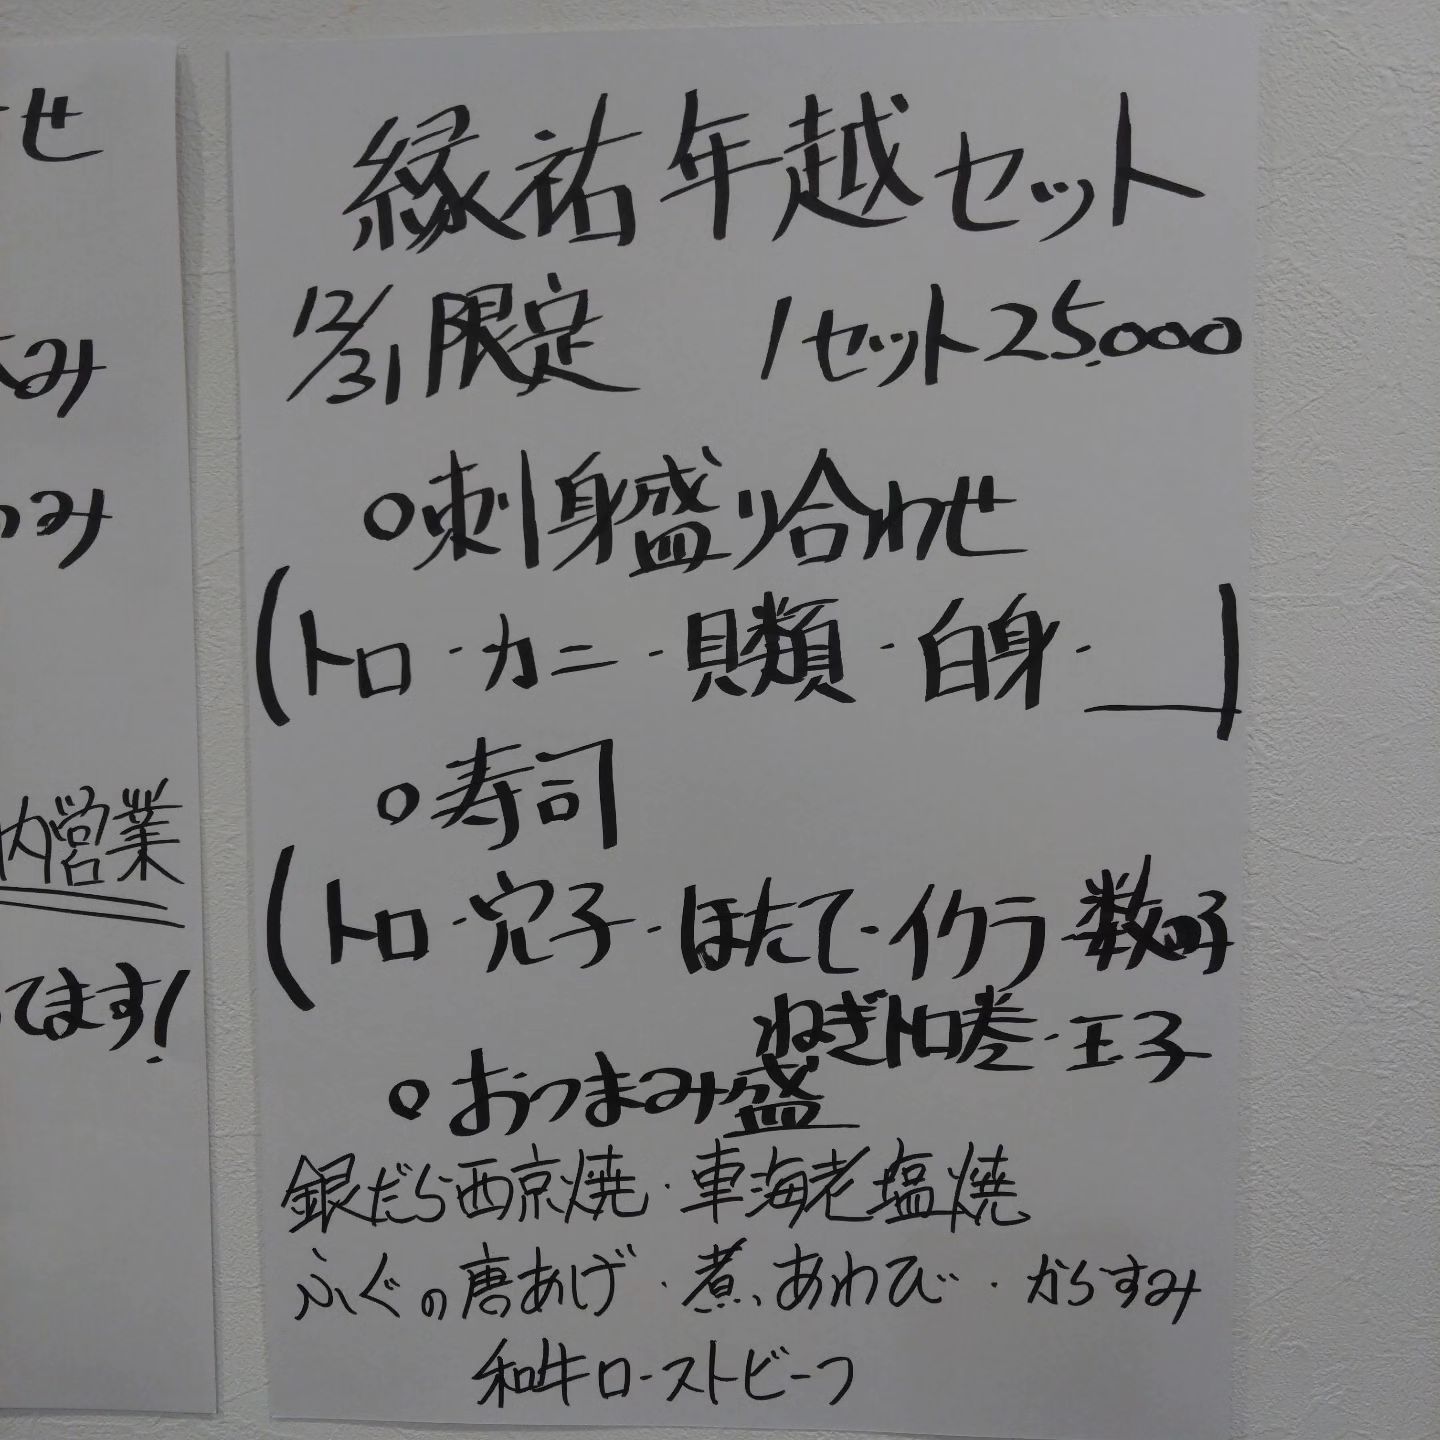 せ
み
み
内営業
てます!
縁祐年越セット
12/31限定 1セット25,000
○刺身盛り合わせ
(トロ・カニ・貝類・白身・
○寿司
(トロ・穴子・ほたて・イクラ 数の子
ねぎトロ巻・玉子
○おつまみ盛
銀だら西京焼・車海老塩焼
ふぐの唐あげ・煮あわび・からすみ
和牛ローストビーフ